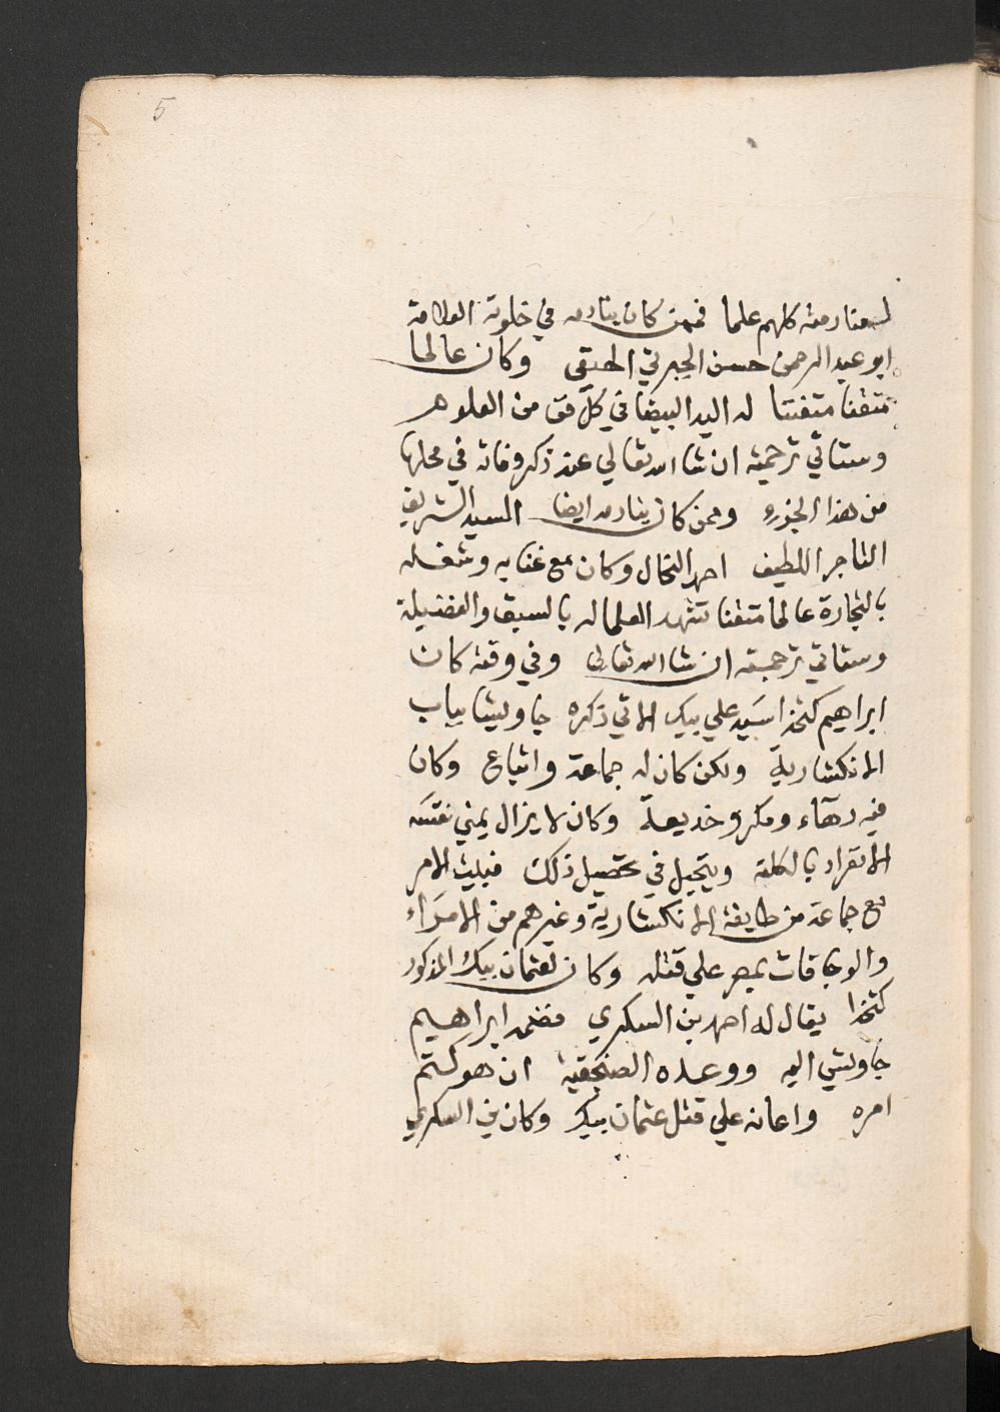 5
لمنادمته كلهم علما فممن كان ينادمه في خلوته العلامة
ابو عبد الرحمن حسن الجبرتي الحنفي وكان عالما
متقنا متفننا له اليد البيضا في كل فن من العلوم
وستاتي ترجمته ان شا الله تعالي عند ذكر وفاته في محلها
من هذا الجزو وممن كان ينادمه ايضا السيد الشريف
التاجر اللطيف احمد النخال وكان مع غنايه وشغله
بالتجارة عالما متقنا تشهد العلما له بالسبق والفضيلة
وستاتي ترجمته ان شا الله تعالي وفي وقته كان
ابراهيم كتخدا سيد علي بيك الاتي ذكره جاويشا بباب
الانكشارية ولكن كان له جماعة واتباع وكان
فيه دهآء ومكر وخديعة وكان لا يزال يمني نفسه
الانفراد بالكلمة ويتحيل في تحصيل ذلك فبيت الامر
مع جماعة من طايفة الانكشارية وغيرهم من الامرآء
والوجاقات بمصر علي قتله وكان لعثمان بيك المذكور
كتخدا يقال له احمد بن السكري فضمه ابراهيم
جاويش اليه ووعده الصنجقية ان هو كتم
امره واعانه علي قتل عثمان بيك وكان بن السكري